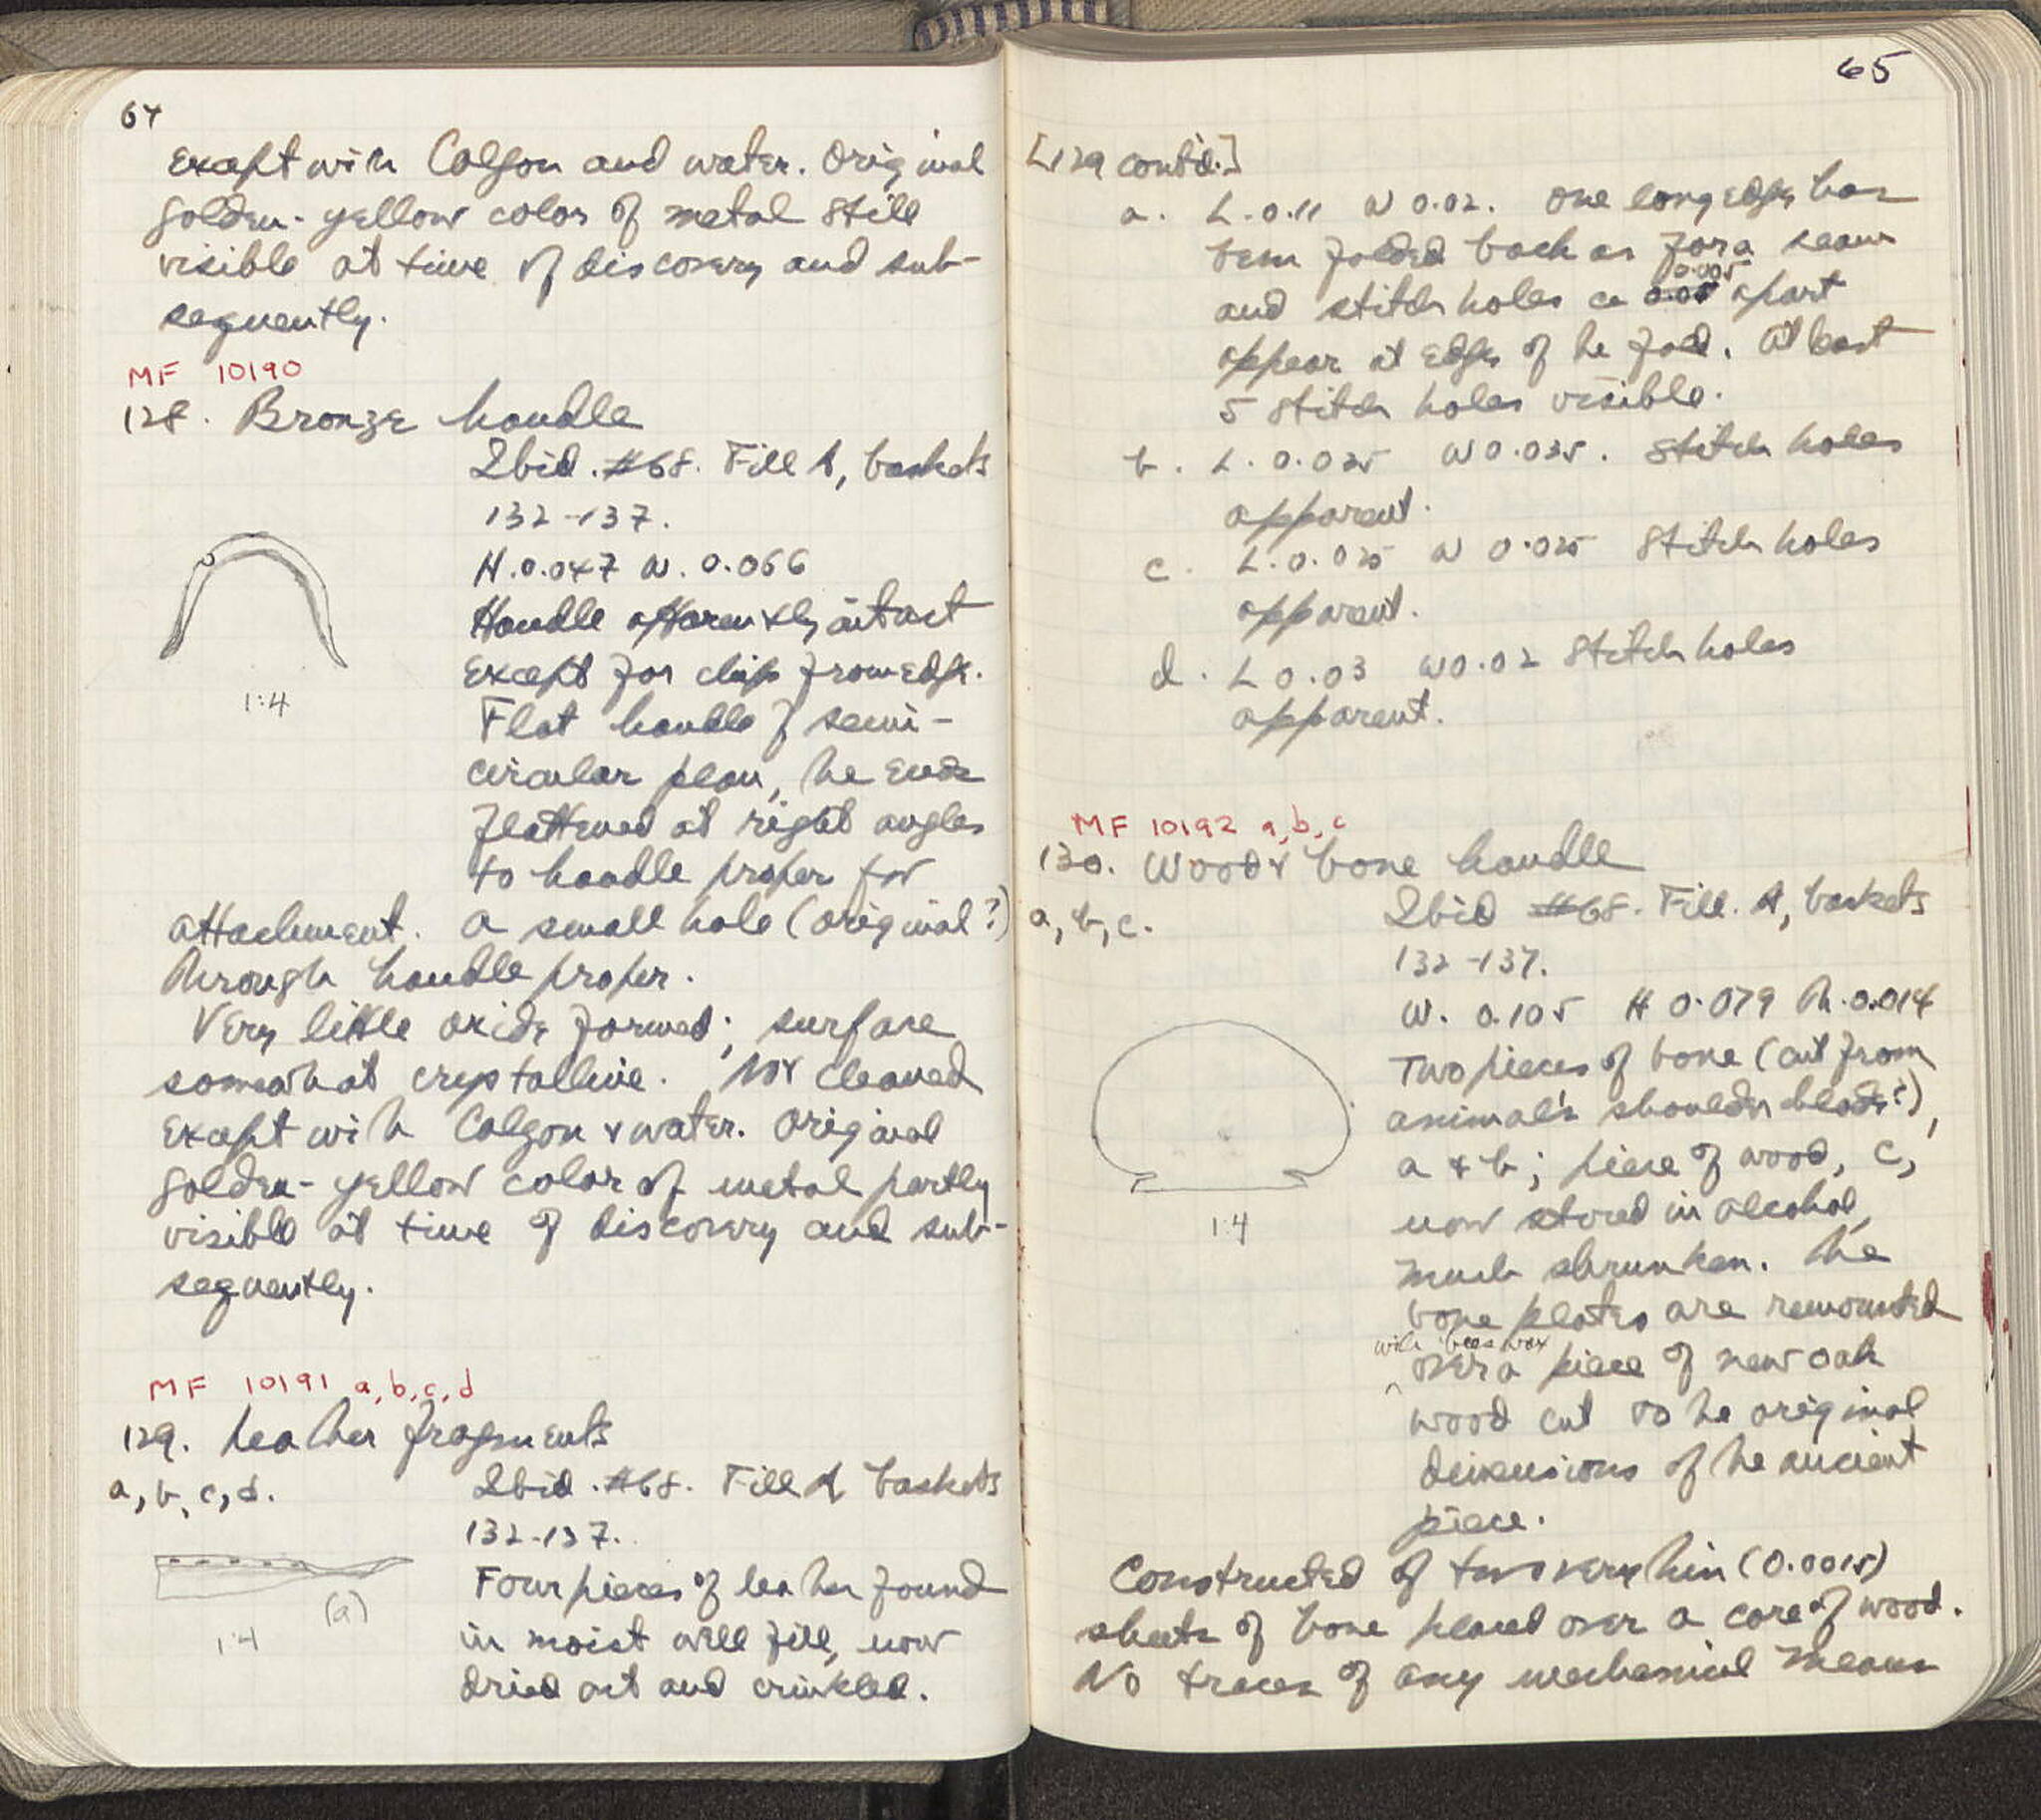 64
except with Calgon and water. Original
golden-yellow color of metal still
visible at time of discovery and sub-
sequently.
MF 10190
128. Bronze handle
Ibid. #68. Fill A, baskets
132-137.
H. 0.047 W. 0.066
Handle apparently intact
except for chip from edge.
Flat handle of semi-
circular plan, the ends
flattened at right angles
to handle proper for
attachment. A small hole (original?)
through handle proper.
Very little oxide formed; surface
somewhat crystalline. Not cleaned
except with Calgon & water. Original
golden-yellow color of metal partly
visible at time of discovery and sub-
sequently.
1:4
MF 10191 a,b,c,d
129. Leather fragments
a, b, c, d.
Ibid. #68. Fill A baskets
132-137.
Four pieces of leather found
in moist well fill, now
dried out and crinkled.
(a)
1:4
65
[129 cont'd.]
a. L. 0.11 W 0.02. One long edge has
been folded back as for a seam
and stitch holes ca 0.005 apart
appear at edge of the fold. At least
5 stitch holes visible.
b. L. 0.035 W 0.035. Stitch holes
apparent.
c. L. 0.025 W 0.025 Stitch holes
apparent.
d. L 0.03 W 0.02 Stitch holes
apparent.
MF 10192 a,b,c
130. Wood & bone handle
a, b, c.
Ibid #68. Fill A, baskets
132-137.
W. 0.105 H 0.079 Th. 0.014
Two pieces of bone (cut from
animal's shoulder blade?),
a & b; piece of wood, c,
now stored in alcohol,
much shrunken. The
bone plates are remounted
with bees wax
over a piece of new oak
wood cut to the original
dimensions of the ancient
piece.
1:4
Constructed of two very thin (0.0015)
sheets of bone placed over a core of wood.
No traces of any mechanical means